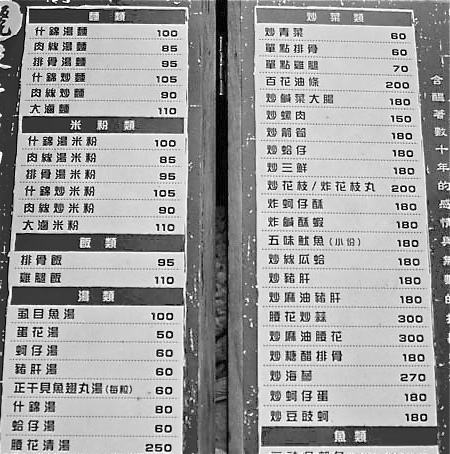 麵類
什錦湯麵 100
肉絲湯麵 85
排骨湯麵 95
什錦炒麵 105
肉絲炒麵 90
大滷麵 110
米粉類
什錦湯米粉 100
肉絲湯米粉 85
排骨湯米粉 95
什錦炒米粉 105
肉絲炒米粉 90
大滷米粉 110
飯類
排骨飯 95
雞腿飯 110
湯類
虱目魚湯 100
蛋花湯 50
蚵仔湯 60
豬肝湯 60
正干貝魚翅丸湯(每粒) 60
什錦湯 80
蛤仔湯 60
腰花清湯 250
炒菜類
炒青菜 60
單點排骨 60
單點雞腿 70
百花油條 200
炒鹹菜大腸 180
炒螺肉 150
炒箭筍 180
炒蛤仔 180
炒三鮮 180
炒花枝/炸花枝丸 200
炸蚵仔酥 180
炸鹹酥蝦 180
五味魷魚(小份) 180
炒絲瓜蛤 180
炒豬肝 180
炒麻油豬肝 180
腰花炒蒜 300
炒麻油腰花 300
炒糖醋排骨 180
炒海蔘 270
炒蚵仔蛋 180
炒豆豉蚵 180
魚類
含醞著數十年的感情與